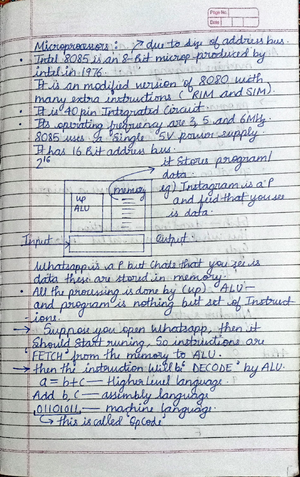 Page No.
Date
Microprocessors : → due to size of address bus.
• Intel 8085 is an 8-Bit microp. produced by
intel in 1976.
• It is an modified version of 8080 with
many extra instructions (RIM and SIM).
• It is 40 pin Integrated Circuit
• Its operating frequency are 3, 5 and 6MHz.
• 8085 uses a single 5V power supply.
• It has 16 Bit address bus.
2^16
it Stores program/
data
eg) Instagram is a P
and feed that you see
is data.
memory
up
ALU
Input
Output
Whatsapp is a P but Chats that you see is
data these are stored in memory.
• All the processing is done by (up) ALU-
and program is nothing but set of Instruct
-ions.
→ Suppose you open Whatsapp, then it
should start runing, So instructions are
"FETCH" from the memory to ALU.
→ then the instruction will be "DECODE" by ALU.
a = b+c — Higher level language.
Add b, c — assembly language
01101011 — machine language.
↳ this is called 'OpCode'